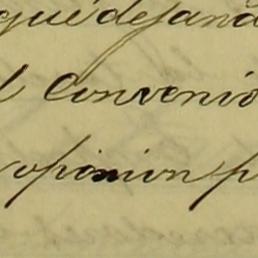 que dejand
l Convenio
opinion p